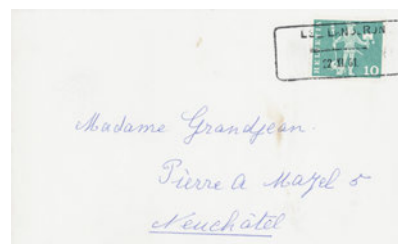 HELVETIA
10
Madame Grandjean.
Pierre à Mazel 5
Neuchâtel